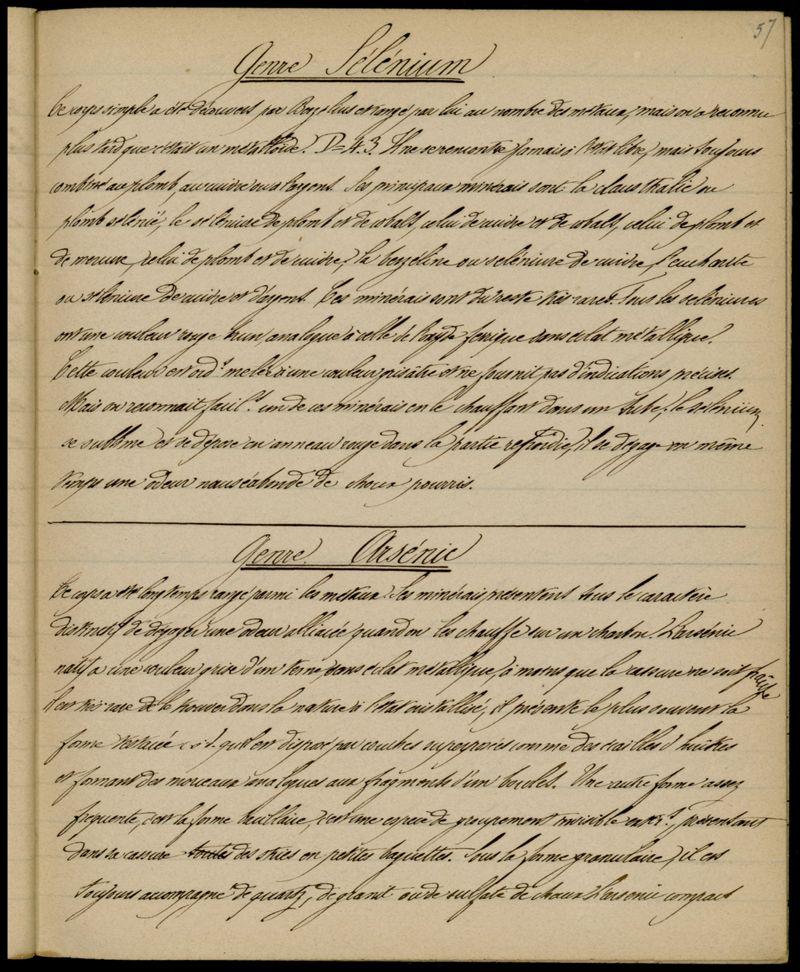 57
Genre Sélénium
Ce corps simple a été découvert par Berzelius et rangé par lui au nombre des métaux, mais on a reconnu
plus tard que c'était un métalloïde. D = 4.3. Il ne se rencontre jamais à l'état libre, mais toujours
combiné au plomb, au cuivre ou à l'argent. Ses principaux minérais sont: la clausthalie ou
plomb sélénié, le séléniure de plomb et de cobalt, celui de cuivre et de cobalt, celui de plomb et
de mercure, celui de plomb et de cuivre, la berzéline ou séléniure de cuivre, l'eucharite
ou séléniure de cuivre et d'argent. Ces minérais sont du reste très rares. Tous les séléniures
ont une couleur rouge brun analogue à celle de l'oxyde ferrique sans éclat métallique.
Cette couleur est ord.t melée à une couleur grisâtre et ne fournit pas d'indications précises.
Mais on reconnait facil.t un de ces minérais en le chauffant dans un tube, le sélénium
se sublime et se dépose en anneau rouge dans la partie refroidie, il se dégage en même
temps une odeur nauséabonde de choux pourris.
Genre Arsénic
Ce corps a été longtemps rangé parmi les métaux. Ses minérais présentent tous le caractère
distinctif de dégager une odeur alliacée quand on les chauffe sur un charbon. L'arsénic
natif a une couleur grise d'un terne, sans éclat métallique, à moins que la cassure ne soit fraîche
Il est très rare de le trouver dans la nature à l'état cristallisé, il présente le plus souvent la
forme testacée c.à.d. qu'il est disposé par couches superposées comme des écailles d'huîtres
et formant des morceaux analogues aux fragments d'un boulet. Une autre forme assez
fréquente, c'est la forme bacillaire, c'est une espèce de groupement visible, présentant
dans sa cassure toutes des stries en petites baguettes. Sous la forme granulaire, il est
toujours accompagné de quartz, de granit ou de sulfate de chaux. L'arsenic compact